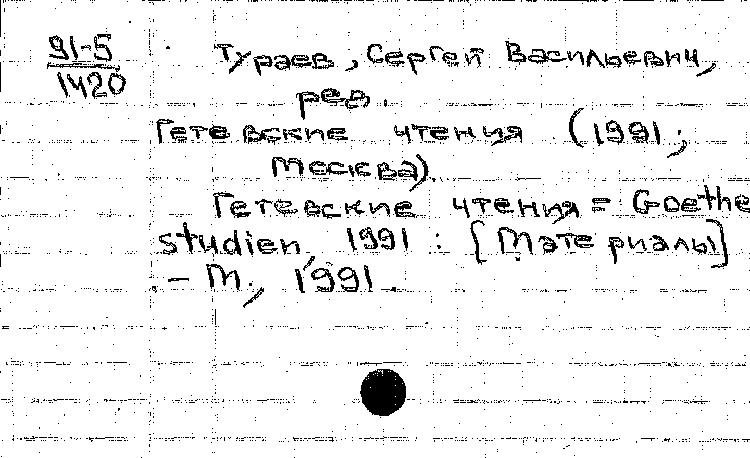 91-5
1420
Тураев, Сергей Васильевич,
ред.
Гетевские чтения (1991;
Москва).
Гетевские чтения = Goethe
studien, 1991 : [Материалы]
- М., 1991.